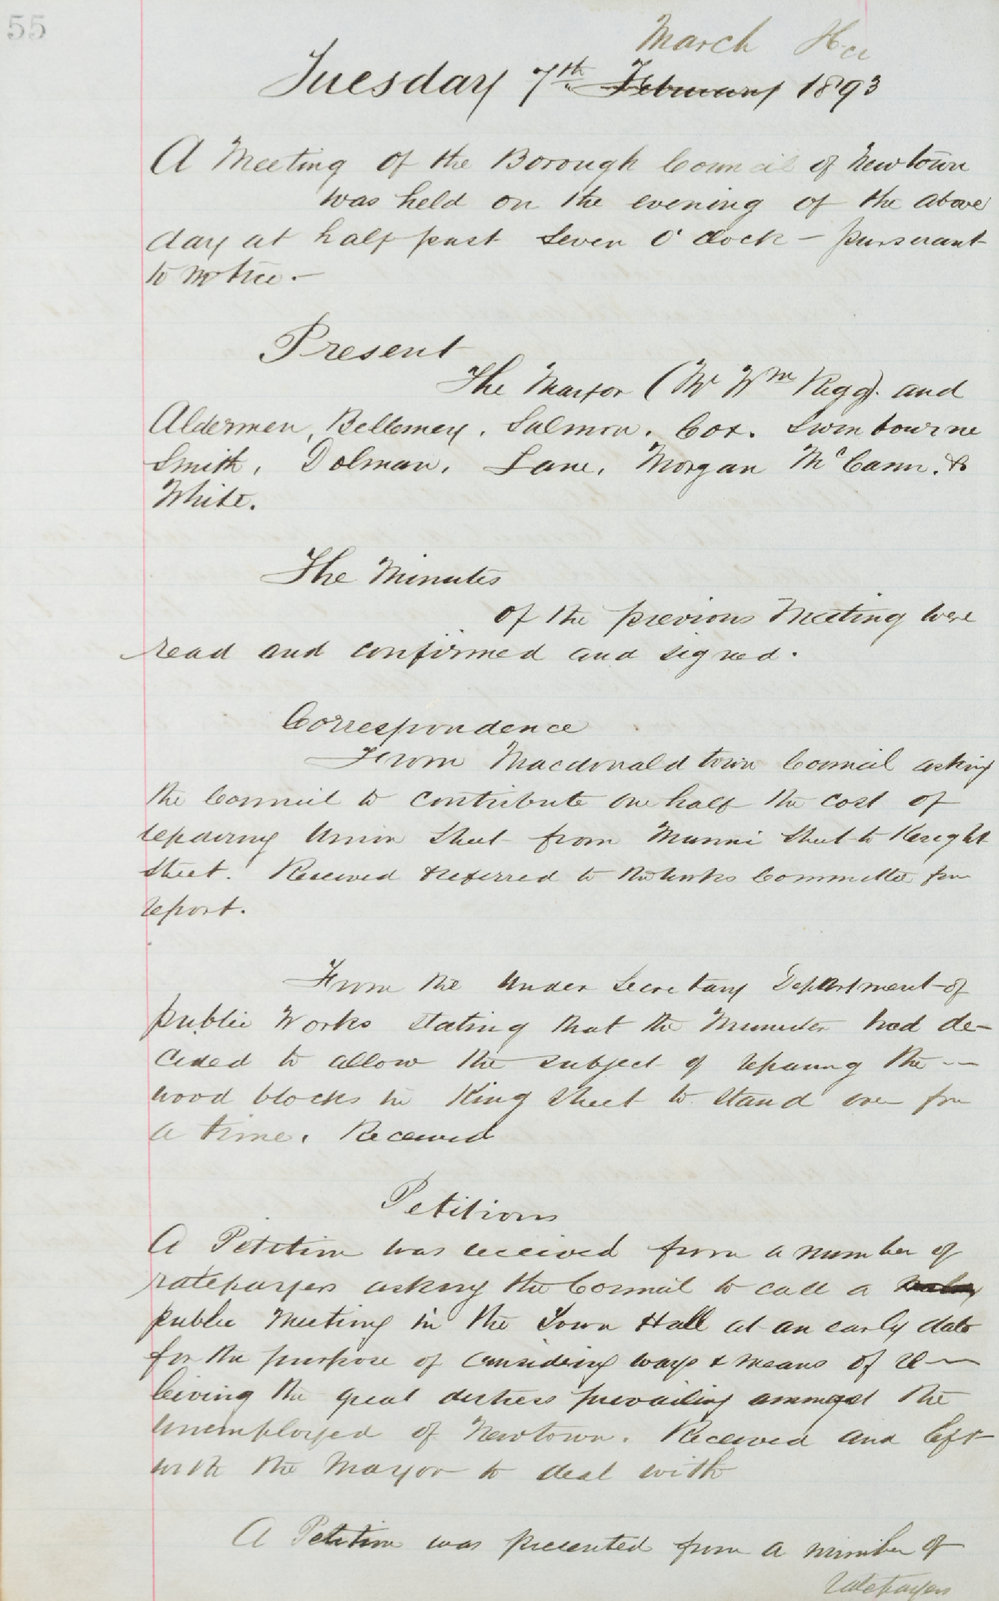 55
March
Tuesday 7th February 1893
A Meeting of the Borough Council of Newtown
was held on the evening of the above
day at half past Seven O'Clock – pursuant
to notice. –
Present
The Mayor (Mr Wm Rigg). and
Aldermen, Bellemey. Salmon. Cox. Swinbourne
Smith, Dolman. Lane, Morgan McCann. &
White.
The Minutes
of the previous Meeting were
read and confirmed and signed.
Correspondence
From Macdonaldtown Council asking
the Council to contribute one half the cost of
repairing Union Street from Munni Street to Knight
Street. Received & referred to the Works Committee for
report.
From the Under Secretary Department of
public Works stating that the Minister had de-
cided to allow the subject of reparing the –
wood blocks in King Street to stand over for
a time. Received
Petitions
A Petition was received from a number of
ratepayers asking the Council to call a
public Meeting in the Town Hall at an early date
for the purpose of considering ways & means of re –
leiving the great distress prevailing ammogst the
unemployed of Newtown. Received and left
with the Mayor to deal with
A Petition was presented from a number of
ratepayers